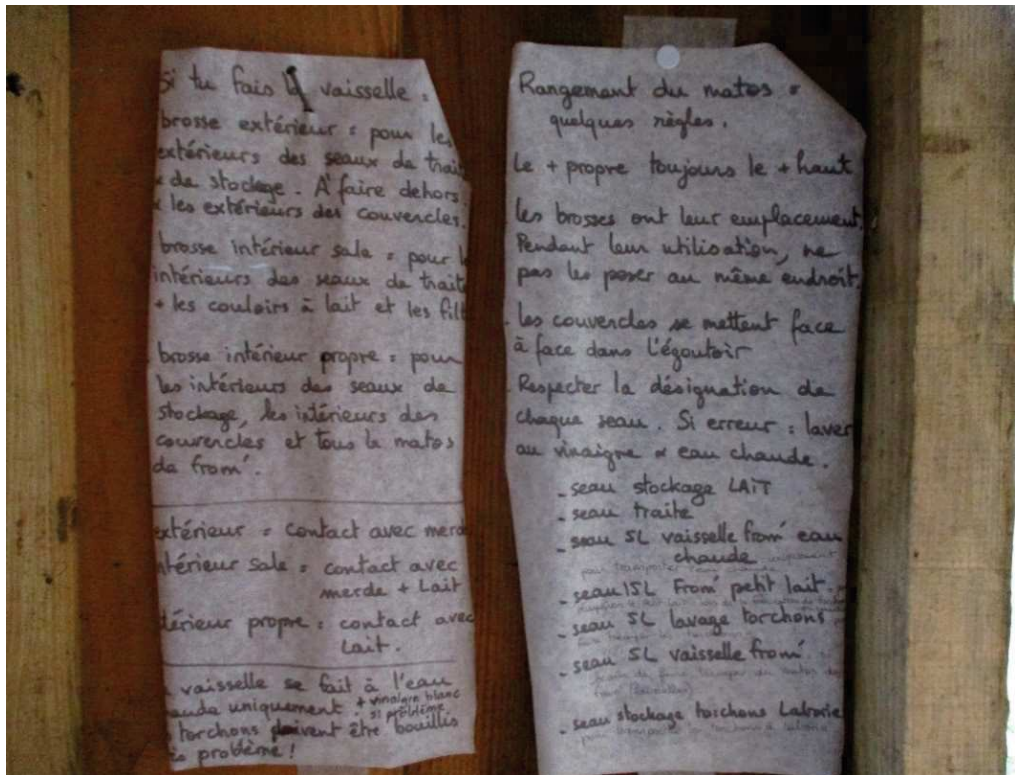 Si tu fais la vaisselle :
brosse extérieur : pour les
extérieurs des seaux de trait
& de stockage. A faire dehors.
& les extérieurs des couvercles.
brosse intérieur sale : pour l
intérieurs des seaux de traite
+ les couloirs à lait et les filt
brosse intérieur propre : pour
les intérieurs des seaux de
stockage, les intérieurs des
couvercles et tous le matos
de from'.
extérieur : contact avec merde
ntérieur sale : contact avec
merde + Lait
térieur propre : contact avec
Lait.
vaisselle se fait à l'eau
aude uniquement + vinaigre blanc
si problème
torchons doivent être bouillis
problème !
Rangement du matos :
quelques règles.
Le + propre toujours le + haut
Les brosses ont leur emplacement.
Pendant leur utilisation, ne
pas les poser au même endroit.
. Les couvercles se mettent face
à face dans l'égoutoir
. Respecter la désignation de
chaque seau. Si erreur : laver
au vinaigre & eau chaude.
- seau stockage LAIT
- seau traite
- seau 5L vaisselle from' eau
chaude
pour transporter l'eau chaude uniquement
- seau 15L From' petit lait.
- seau 5L lavage torchons
- seau 5L vaisselle from'
- seau stockage torchons Laborie